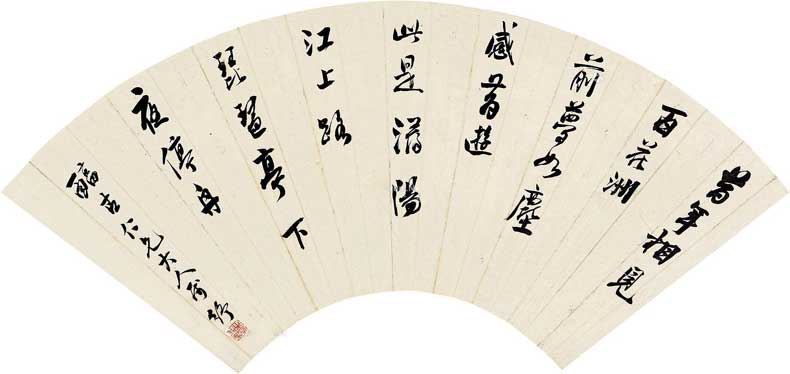 昔年相見
百花洲
前夢如塵
感昔遊
此是潯陽
江上路
琵琶亭下
夜停舟
古仁兄大人